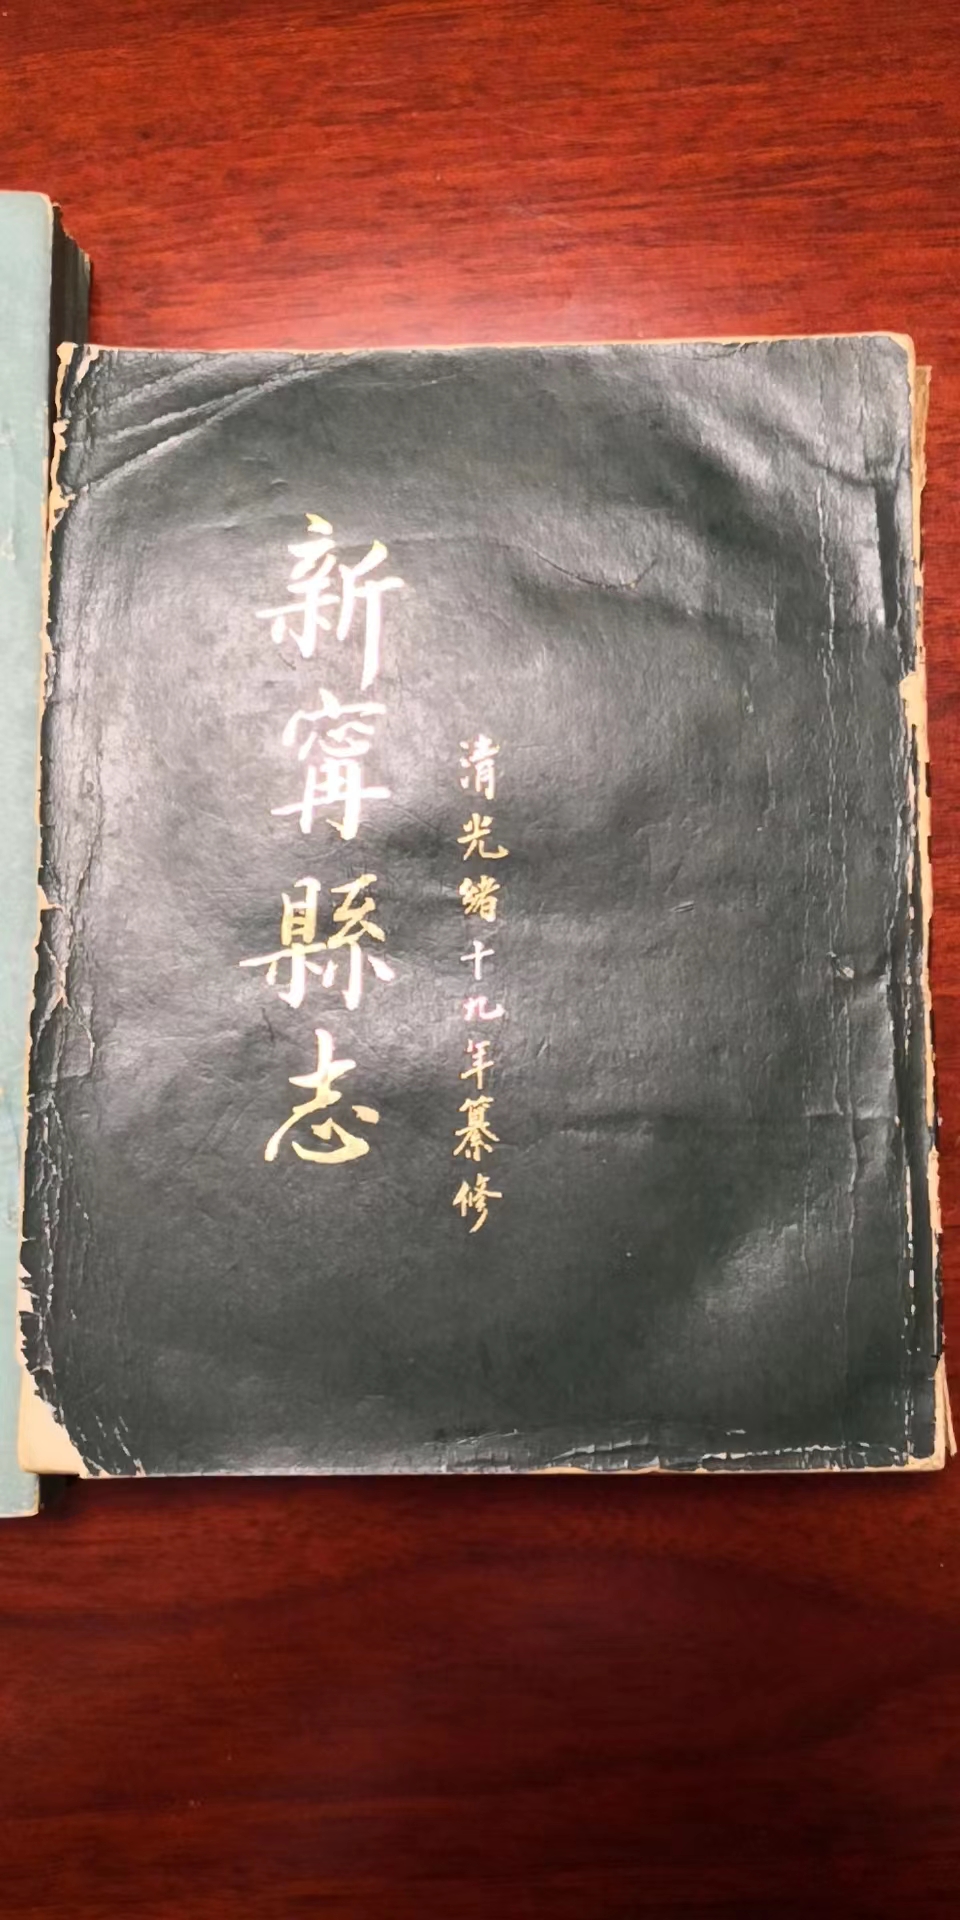 清光緒十九年纂修
新甯縣志